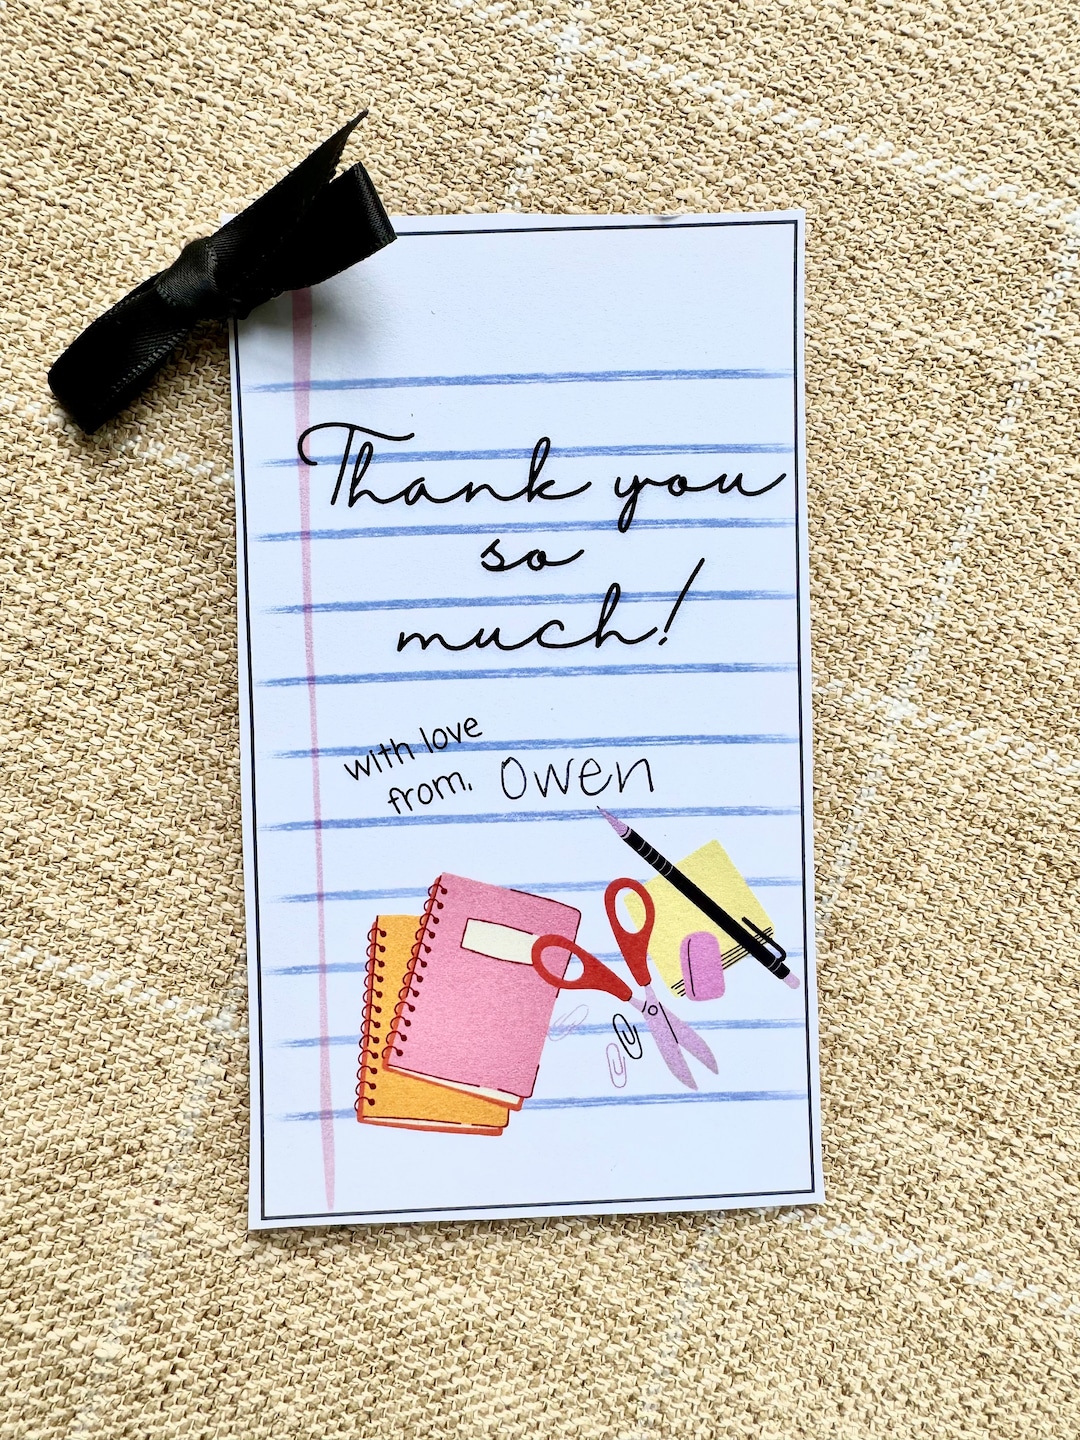 Thank you
so
much!
with love
from, Owen